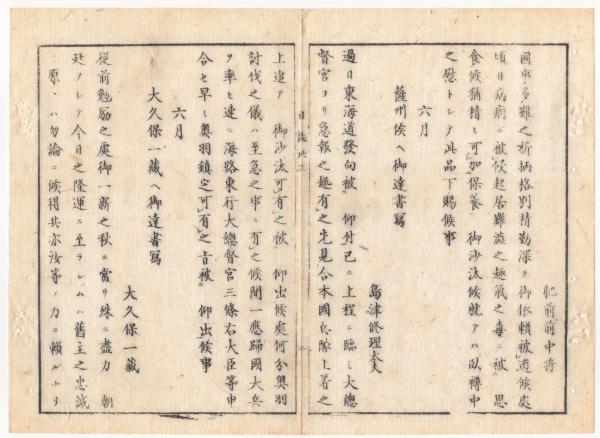 肥前前中将
國事多難之折柄格別精勤深ク御依頼被遊候處
頃日病痾ニ被侵起居難澁之趣氣之毒ニ被思
食候猶精々可加保養御沙汰候就テハ臥褥中
之慰トシテ此品下賜候事
六月
薩州候ヘ御達書寫
島津修理大夫
過日東海道發向被仰付已ニ上程ニ臨ミ大總
督宮ヨリ急報之趣有之先見合本國兵隊上着之
上追テ御沙汰可有之被仰出候處何分奥羽
討伐之儀ハ至急之事ニ有之候間一應歸國大兵
ヲ率ヒ速ニ海路東行大總督宮三條右大臣等申
合セ早々奥羽鎮定可有之旨被仰出候事
六月
大久保一藏ヘ御達書寫
大久保一藏
從前勉励之處御一新之秋ニ當リ殊ニ盡力朝
廷ヲシテ今日之隆運ニ至ラシムハ舊主之忠誠
原ハ勿論ニ候得共亦汝等ノ力ニ頼ルナリ